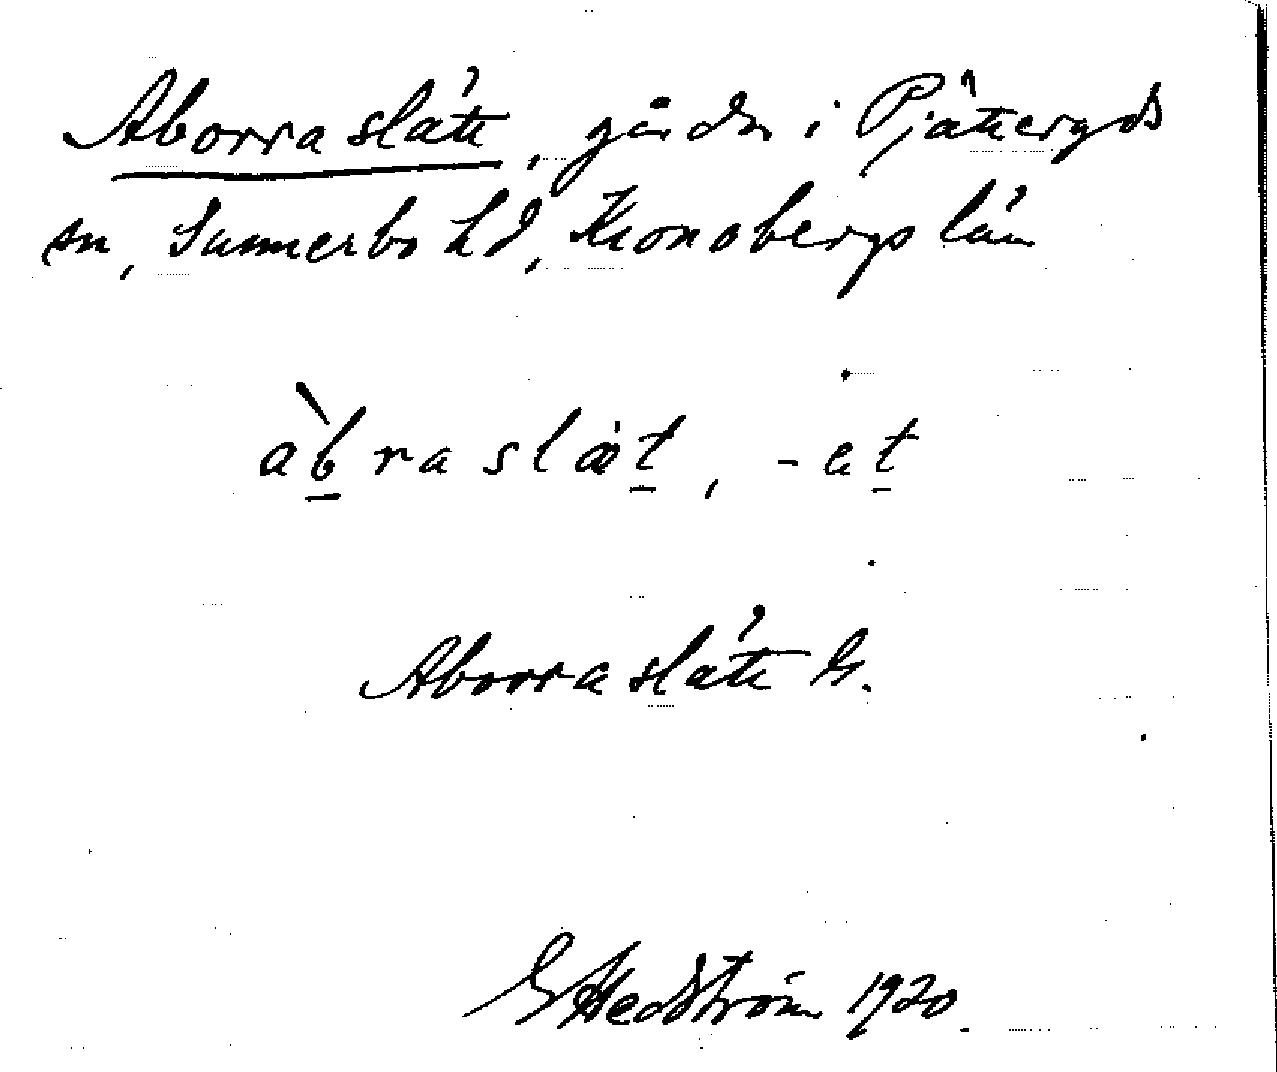 Aborraslätt, gårdn i Pjätteryds
sn, Sunnerbo hd, Kronobergs län
àbraslät, -et
Aborraslätt G.
G Hedström 1920.